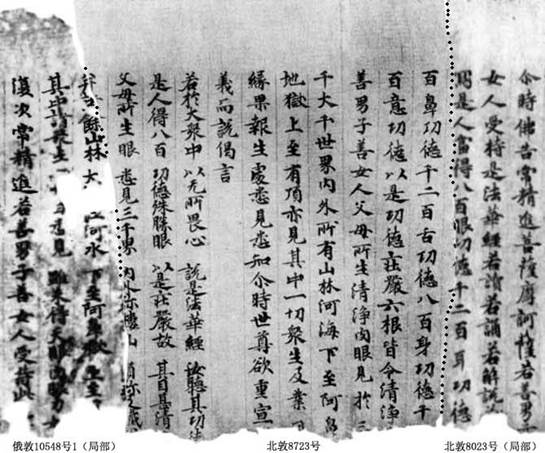 尒時佛告常精進菩薩摩訶薩若善男
女人受持是法華經若讀若誦若解說
寫是人當得八百眼功德千二百耳功德
百鼻功德千二百舌功德八百身功德千
百意功德以是功德莊嚴六根皆令清淨
善男子善女人父母所生清淨肉眼見於三
千大千世界內外所有山林河海下至阿鼻
地獄上至有頂亦見其中一切眾生及業
緣果報生處悉見悉知尒時世尊欲重宣
義而說偈言
若於大眾中 以无所畏心 說是法華經 汝聽其功
是人得八百 功德殊勝眼 以是莊嚴故 其目甚清
父母所生眼 悉見三千界 內外弥樓山 須弥及
并諸餘山林 大 江河水 下至阿鼻獄
其中諸眾生 悉見 雖未得天眼 肉眼力
復次常精進若善男子善女人受持此
俄敦10548号1（局部）
北敦8723号
北敦8023号（局部）